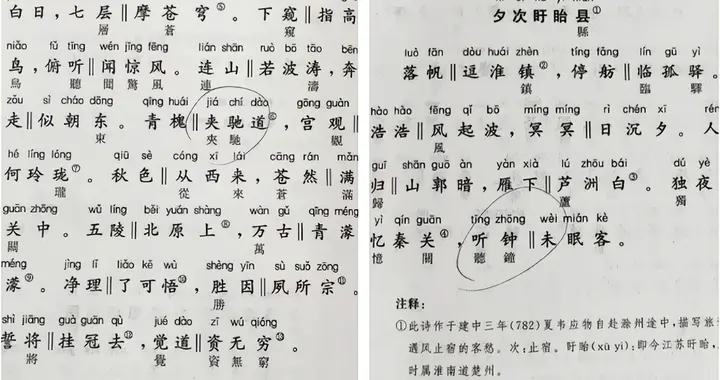 白日，七层‖摩苍穹⑤。下窥‖指高
層 蒼 窺
niǎo fǔ tīng wén jīng fēng lián shān ruò bō tāo bēn
鸟，俯听‖闻惊风。连山‖若波涛，奔
鳥 聽 聞 驚 風 連 濤
zǒu sì cháo dōng qīng huái jiá chí dào gōng guàn
走‖似朝东。青槐‖夹驰道⑥，宫观‖
東 夾 馳 觀
hé líng lóng qiū sè cóng xī lái cāng rán mǎn
何玲珑⑦。秋色‖从西来，苍然‖满
瓏 從 來 蒼 滿
guān zhōng wǔ líng běi yuán shàng wàn gǔ qīng méng
关中。五陵‖北原上⑧，万古‖青濛
關 萬
méng jìng lǐ liǎo kě wù shèng yīn sù suǒ zōng
濛⑨。净理‖了可悟⑩，胜因‖夙所宗⑪。
勝
shì jiāng guà guān qù jué dào zī wú qióng
誓将‖挂冠去⑫，觉道‖资无穷⑬。
將 覺 資 無 窮
夕次盱眙县①
縣
luò fān dòu huái zhèn tíng fǎng lín gū yì
落帆‖逗淮镇②，停舫‖临孤驿。
鎮 臨 驛
hào hào fēng qǐ bō míng míng rì chén xī rén
浩浩‖风起波，冥冥‖日沉夕。人
風
guī shān guō àn yàn xià lú zhōu bái dú yè
归‖山郭暗，雁下‖芦洲白③。独夜
歸 蘆 獨
yì qín guān tīng zhōng wèi mián kè
忆秦关④，听钟‖未眠客。
憶 關 聽 鐘
注释：
①此诗作于建中三年(782)夏韦应物自赴滁州途中，描写旅
遇风止宿的客愁。次：止宿。盱眙(xū yí)：即今江苏盱眙，
时属淮南道楚州。